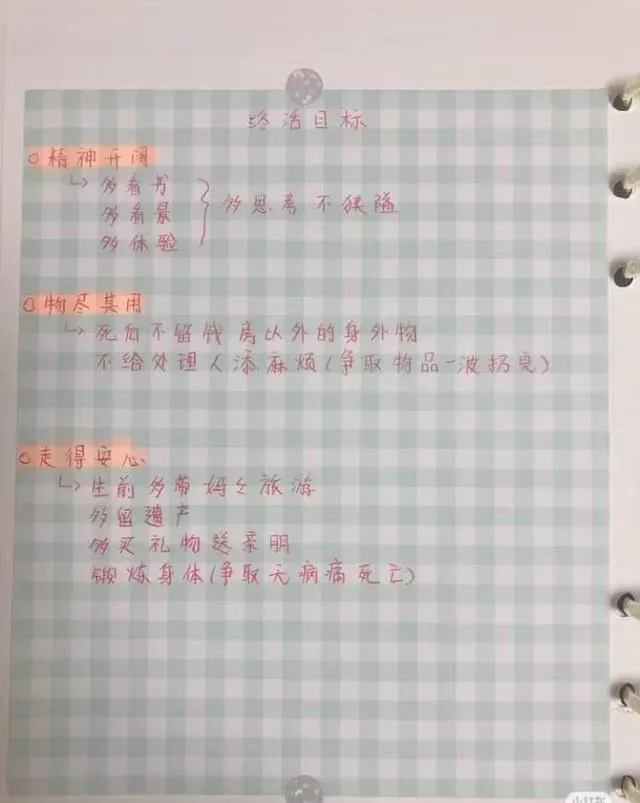 终活目标
精神开阔
多看书
多看景
多体验
多思离 不狭隘
物尽其用
死后不留钱房以外的身外物
不给处理人添麻烦(争取物品一波扔完)
走得安心
生前多带妈々旅游
多留遗产
多买礼物送亲朋
锻炼身体(争取无病痛死亡)
小红书